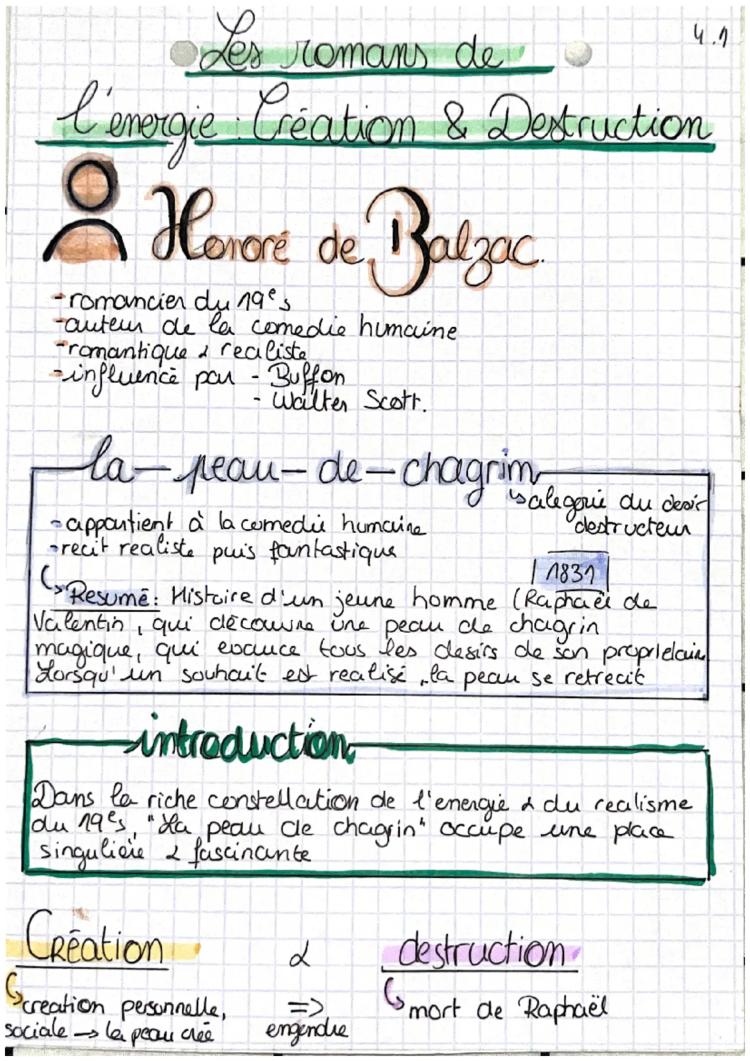 4.1
Les romans de
l'énergie : Création & Destruction
Honoré de Balzac.
-romancier du 19e s
-auteur de la comedie humaine
-romantique & realiste
-influencé par - Buffon
- Walter Scott.
la-peau-de-chagrin
↳alegorie du desir
destructeur
-appartient à la comedie humaine
-recit realiste puis fantastique
1831
↳Resumé: Histoire d'un jeune homme (Raphaël de
Valentin, qui découvre une peau de chagrin
magique, qui exauce tous les desirs de son proprietaire
Lorsqu'un souhait est realisé, la peau se retrecit
introduction
Dans la riche constellation de l'energie & du realisme
du 19e s, "La peau de chagrin" occupe une place
singulière & fascinante
Création & destruction
↳creation personnelle, => ↳mort de Raphaël
sociale → la peau crée engendre